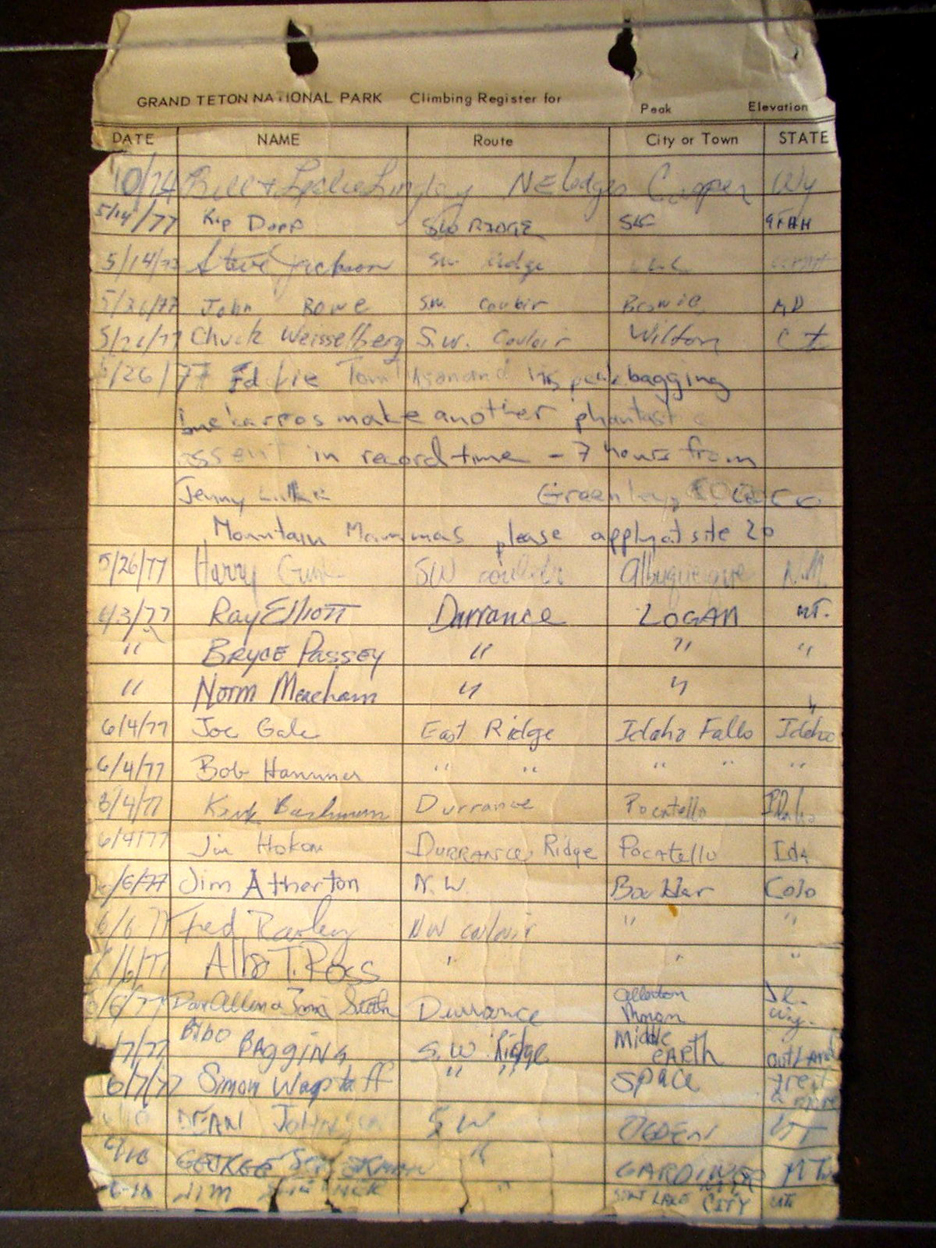 GRAND TETON NATIONAL PARK Climbing Register for Peak Elevation
DATE NAME Route City or Town STATE
10/74 Bill & Leslie Lingley NE ledges Casper Wy
5/14/77 Kip Dopp SW RIDGE SLC UTAH
5/14/77 Steve Jackson SW ridge
5/26/77 John Bowe S.W. Couloir Bowie MD
5/26/77 Chuck Weisselberg S.W. Couloir Wilton Ct
5/26/77 Eddie Tom and his peak bagging
make another
assent in record time - 7 hours from
Jenny Greeley,
Mountain Mammas please apply at site 20
5/26/77 Harry SW couloir Albuquerque N.M.
6/3/77 Ray Elliott Durrance LOGAN UT.
" BRYCE PASSEY " " "
" Norm Meacham " "
6/4/77 Joe Gale East Ridge Idaho Falls Idaho
6/4/77 Bob Hammer " " " " "
6/4/77 Durrance Pocatello Idaho
6/4/77 Jim Hokon DURRANCE Ridge POCATELLO Ida
6/6/77 Jim Atherton N.W. Boulder Colo
6/6/77 Fred Raxley NW couloir " "
6/6/77 Albo T. Ross " " "
6/6/77 Dave Allen Smith Durrance
6/7/77 BILBO BAGGINS S.W. Ridge Middle EARTH
6/7/77 Simon Wagstaff " " Space
DEAN SW OGDEN UT
6/10 GEORGE " GARDINER MT
6-10 JIM " SALT LAKE CITY UT